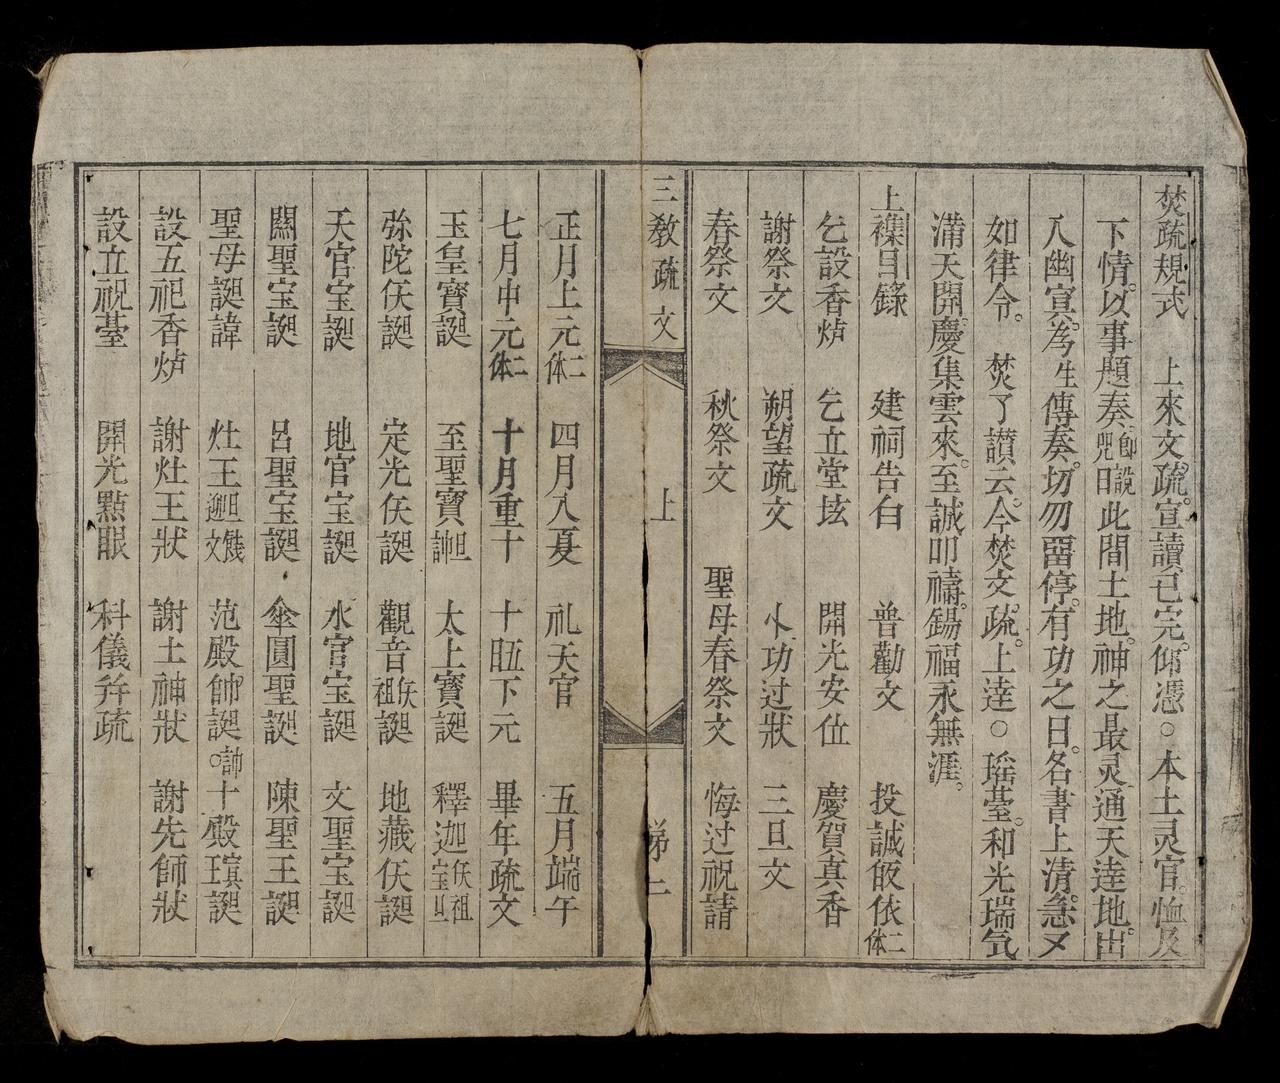 焚疏規式　上來文疏。宣讀已完。仰憑○本土灵官。恤及
下情。以事題奏。即說咒曰此間土地。神之最灵通天達地。出
入幽冥。為吾傳奏。切勿畱停。有功之日。名書上清。急〻
如律令。　焚了讃云。今焚文疏。上達○瑶䑓。和光瑞気
滿天開。慶集雲來。至誠叩禱。錫福永無涯。
上襍目錄　建祠告白　普勸文　投誠皈依二体
乞設香炉　乞立堂垓　開光安位　慶賀真香
謝祭文　朔望疏文　功过狀　三旦文
春祭文　秋祭文　聖母春祭文　悔过祝請
三敎疏文　上　第二
正月上元二体　四月入夏　礼天官　五月端午
七月中元二体　十月重十　十𦊚下元　畢年疏文
玉皇寶誕　至聖寶誕　太上寶誕　釋迦佛祖宝旦
弥陀佛誕　定光佛誕　觀音佛祖誕　地藏佛誕
天官宝誕　地官宝誕　水官宝誕　文聖宝誕
關聖宝誕　呂聖宝誕　傘圓聖誕　陳聖王誕
聖母誕諱　灶王迎旦餞文　范殿帥誕○　十殿冥王誕
設五祀香炉　謝灶王狀　謝土神狀　謝先師狀
設立祝䑓　開光點眼　科儀并疏